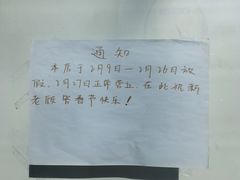 通知
本店于2月9日—2月26日放
假，2月27日正常营业，在此祝新
老顾客春节快乐！